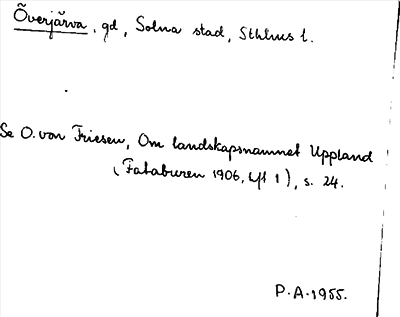 Överjärva, gd, Solna stad, Sthlms l.
Se O. von Friesen, Om landskapsnamnet Uppland
(Fataburen 1906, hft 1), s. 24.
P.A. 1955.